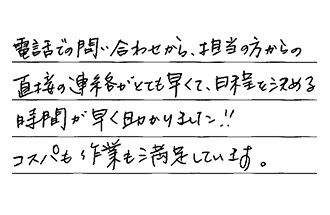 電話での問い合わせから、担当の方からの
直接の連絡がとても早くて、日程を決める
時間が早く助かりました!!
コスパも作業も満足しています。